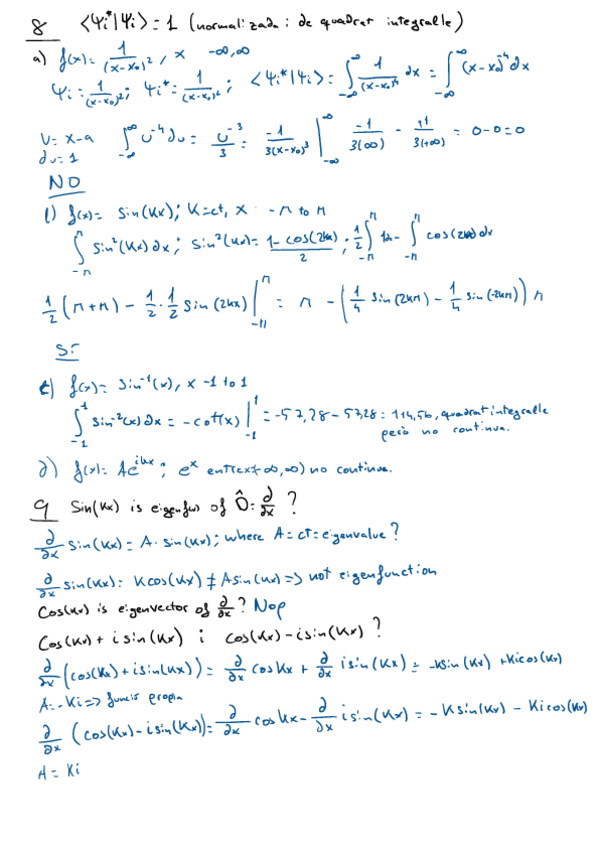 8 <Ψi*|Ψi> = 1 (normalizada i de quadrat integralle)
a) f(x) = 1/(x-x₀)², x -∞,∞
Ψi: 1/(x-x₀)²; Ψi*: 1/(x-x₀)²; <Ψi*|Ψi>: ∫_{-∞}^{∞} 1/(x-x₀)⁴ dx = ∫_{-∞}^{∞} (x-x₀)⁻⁴ dx
U= x-a ∫_{-∞}^{∞} U⁻⁴ dU = U⁻³/3 = -1/3(x-x₀)³ |_{-∞}^{∞} -1/3(∞) - +1/3(+∞) = 0-0=0
du=1
NO
f(x)= sin(Kx); K=ct, x -π to π
∫_{-π}^{π} sin²(Kx) ∂x; sin²(Kx)= 1-cos(2Kx)/2; 1/2 ∫_{-π}^{π} 1dx - ∫_{-π}^{π} cos(2Kx)dx
1/2 (π+π) - 1/2 · 1/2 sin(2Kx) |_{-π}^{π} = π - (1/4 sin(2Kπ) - 1/4 sin(-2Kπ)) π
SÍ
c) f(x)= sin⁻¹(x), x -1 to 1
∫_{-1}^{1} sin⁻²(x) ∂x = -cot(x) |_{-1}^{1} = -57,28 - 57,28 = 114,56, quadrat integralle
però no continua.
d) f(x)= Ae^{ikx}; e^x entre(-∞,∞) no continua.
9 Sin(Kx) is eigenfun of Ô: ∂/∂x ?
∂/∂x sin(Kx) = A · sin(Kx); where A=ct=eigenvalue?
∂/∂x sin(Kx): Kcos(Kx) ≠ A sin(Kx) => not eigenfunction
Cos(Kx) is eigenvector of ∂/∂x? Nop
Cos(Kx) + i sin(Kx) i cos(Kx) - i sin(Kx) ?
∂/∂x (cos(Kx) + i sin(Kx)) = ∂/∂x cos Kx + ∂/∂x i sin(Kx) = -K sin(Kx) + Ki cos(Kx)
A = -Ki => funció propia
∂/∂x (cos(Kx) - i sin(Kx)) = ∂/∂x cos Kx - ∂/∂x i sin(Kx) = -K sin(Kx) - Ki cos(Kx)
A = Ki